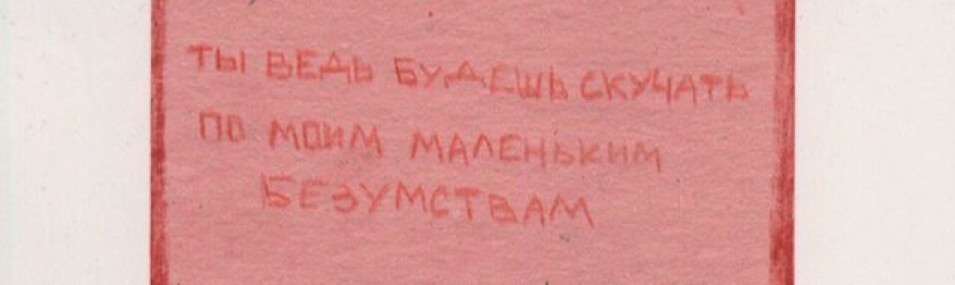 ТЫ ВЕДЬ БУДЕШЬ СКУЧАТЬ
ПО МОИМ МАЛЕНЬКИМ
БЕЗУМСТВАМ